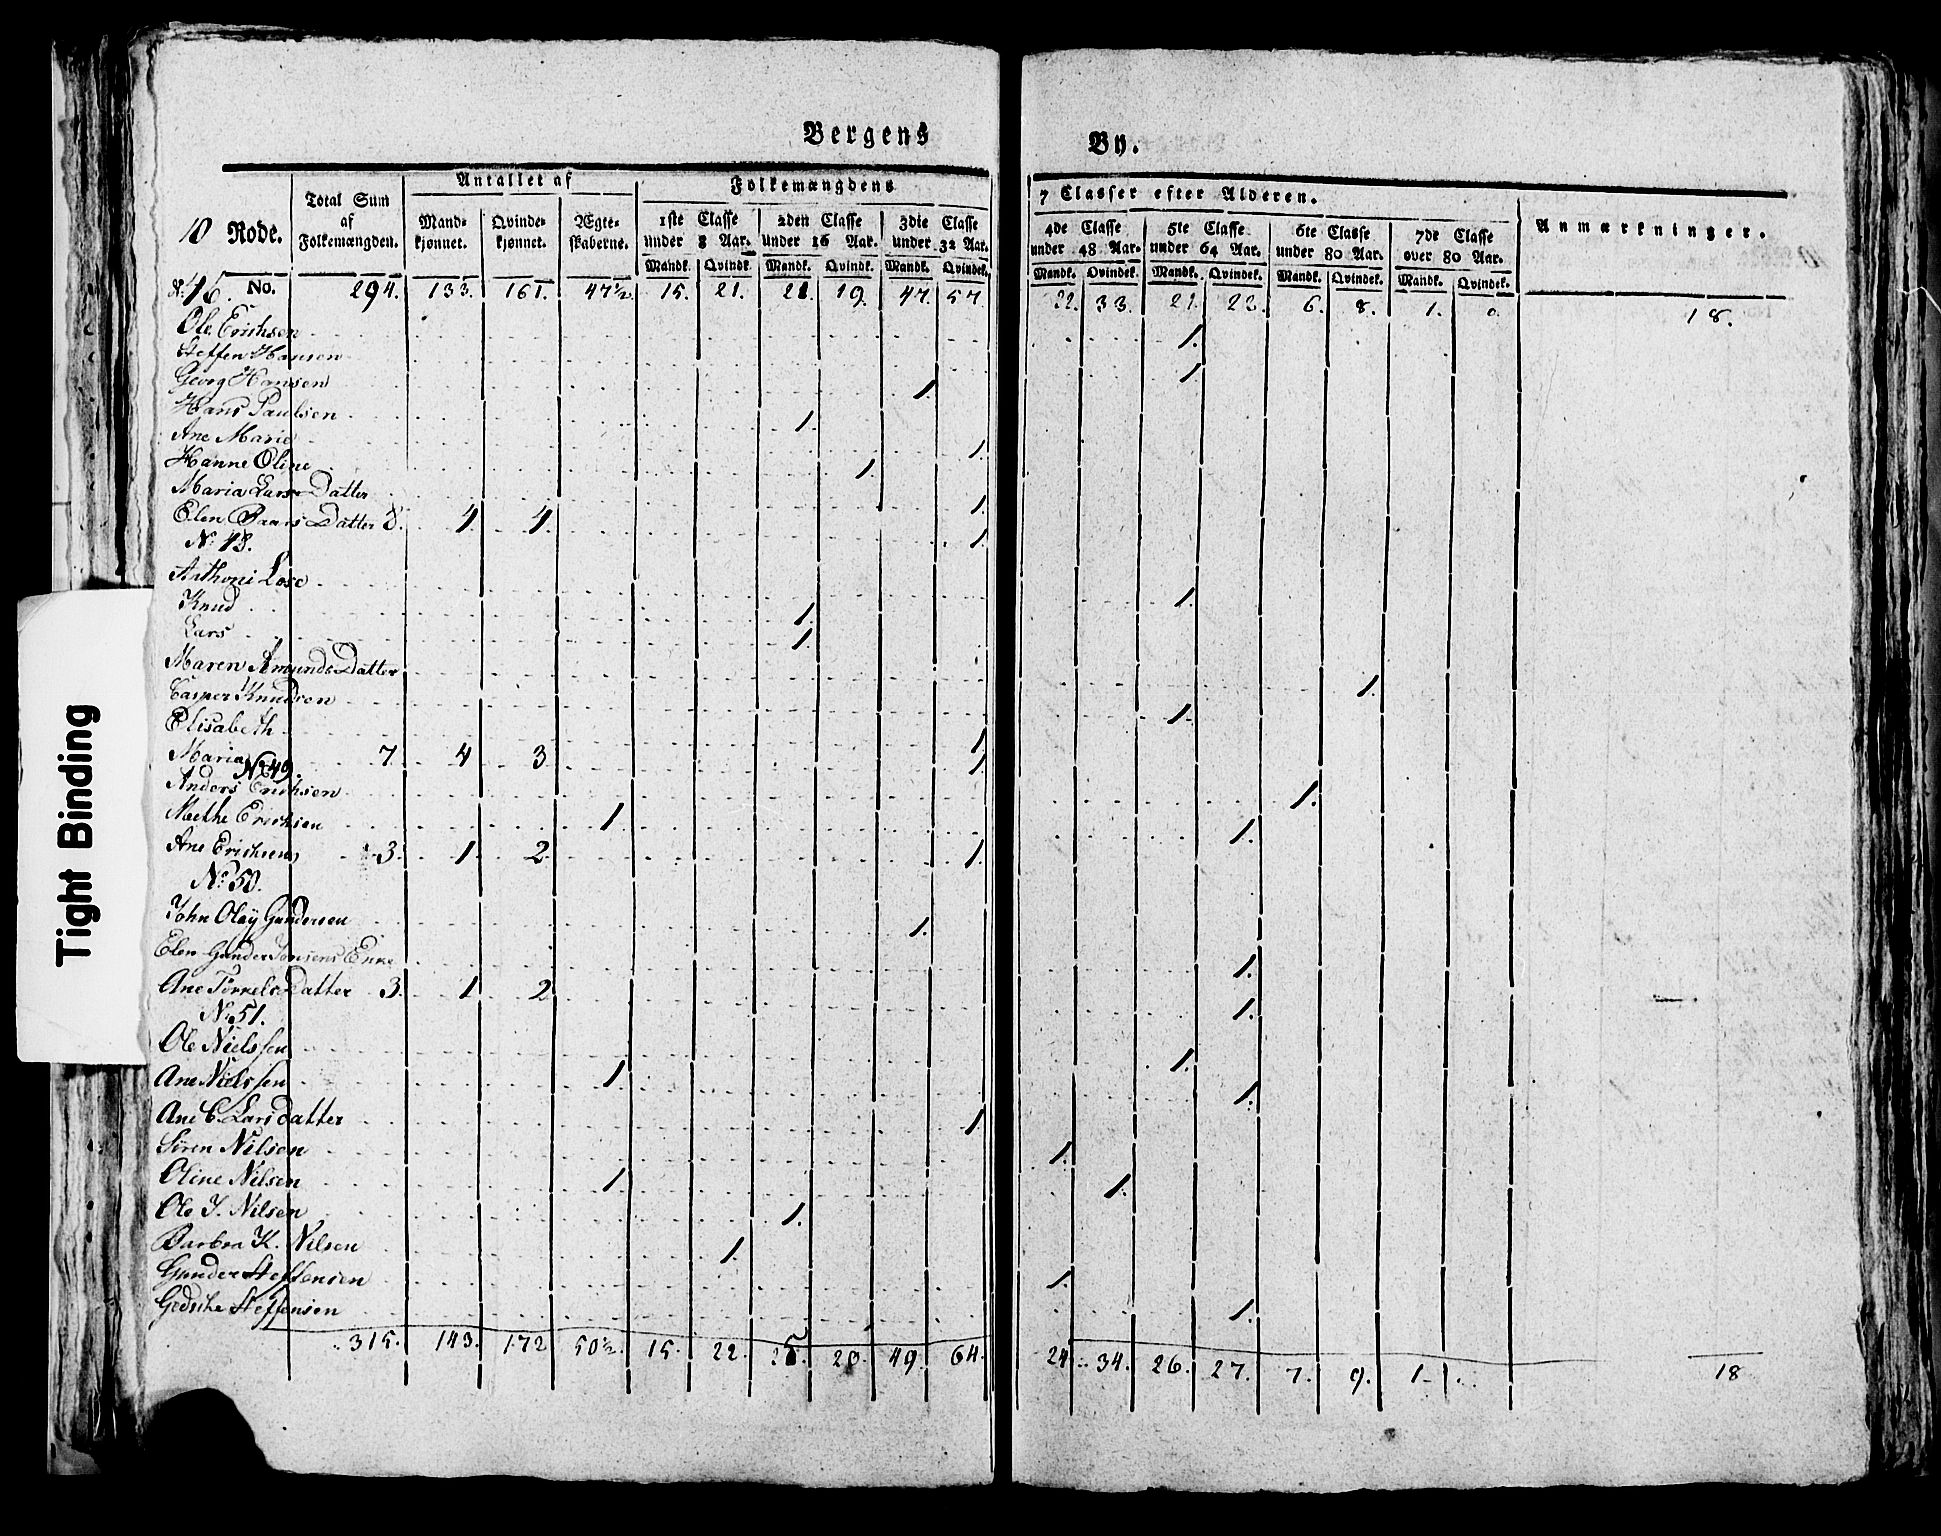 Bergens By.
10 Rode.
Total Sum af Folkemængden.
Antallet af
Mandkjønnet.
Qvindekjønnet.
Ægteskaberne.
Folkemængdens 7 Classer efter Alderen.
1ste Classe under 8 Aar.
2den Classe under 16 Aar.
3die Classe under 32 Aar.
4de Classe under 48 Aar.
5te Classe under 64 Aar.
6te Classe under 80 Aar.
7de Classe over 80 Aar.
Anmærkninger.
Mandk. Qvindk. Mandk. Qvindk. Mandk. Qvindek. Mandk. Qvindek. Mandk. Qvindek. Mandk. Qvindek. Mandk. Qvindek.
No. 294. 133. 161. 47½ 15. 21. 21. 19. 47. 57. 22. 33. 21. 22. 6. 8. 1. 0 18.
Ole Erichsen 1.
Steffen Hansen 1
Georg Hansen 1
Hans Paulsen 1.
Ane Marie 1.
Hanne Oline 1.
Maria Lars Datter 1.
Elen Baars Datter 8. 4 4. 1.
No 48.
Anthoni Lose 1.
Knud 1.
Lars 1.
Maren Amunds Datter 1.
Casper Knudsen 1.
Elisabeth 1
Maria 7 4 3 1.
No 49.
Anders Erichsen 1.
Methe Erichsen 1 1.
Ane Erichsen 3. 1 2 1.
No 50.
John Olay Gundersen 1.
Elen Gunder Jonsens Enke 1.
Ane Torkels Datter 3. 1 2 1.
No 51.
Ole Nielssen 1.
Ane Nielssen 1 1.
Ane C. Larsdatter 1
Sören Nilsen 1.
Oline Nilsen 1 1.
Ole J. Nilsen 1.
Barbra K. Nilsen 1.
Gunder Steffensen 1.
Gedsche Steffensen 1.
315. 143. 172 50½ 15. 22. 25. 20. 49. 64. 24. 34. 26. 27. 7. 9. 1 18
Tight Binding